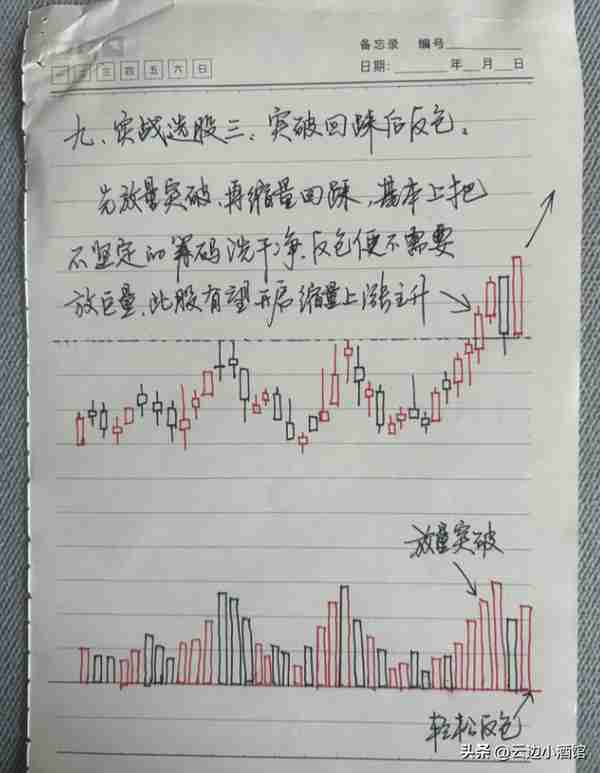 备忘录 编号
一 二 三 四 五 六 日
日期: 年 月 日
九、实战选股三:突破回踩后反包。
先放量突破,再缩量回踩,基本上把
不坚定的筹码洗干净,反包便不需要
放巨量,此股有望开启缩量上涨主升
放量突破
轻松反包
头条 @云边小酒馆